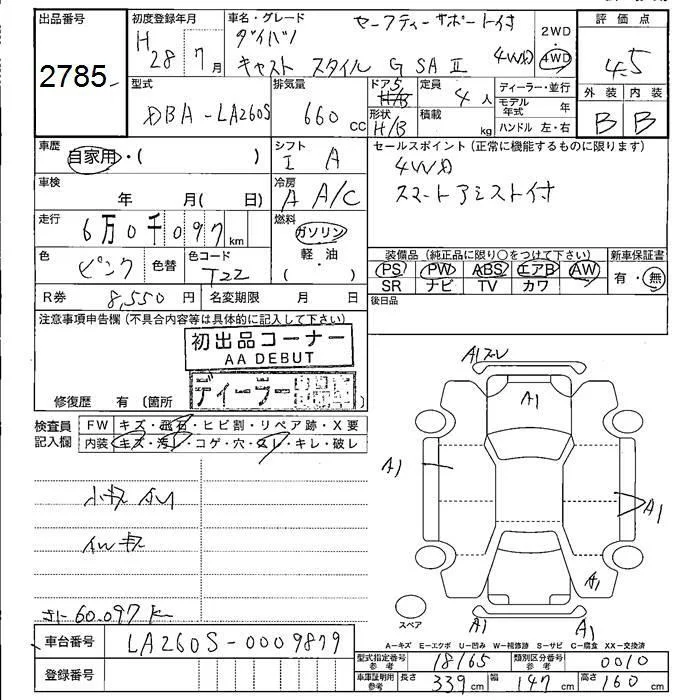 出品番号
2785
初度登録年月
H28 7月
車名・グレード
セーフティーサポート付
ダイハツ
キャスト スタイル G SAⅡ 4WD
2WD
4WD
評価点
4.5
外装 内装
B B
型式
DBA-LA260S
排気量
660 cc
ドア 5
H/B
形状
H/B
定員
4人
積載
kg
ディーラー・並行
モデル年式 年
ハンドル 左・右
車歴
自家用・( )
シフト
I A
セールスポイント (正常に機能するものに限ります)
4WD
スマートアシスト付
車検
年 月( 日)
冷房
A A/C
走行
6万0千097km
燃料
ガソリン
軽・油
( )
色
ピンク
色替
色コード
T22
装備品 (純正品に限り〇をつけて下さい)
PS PW ABS エアB AW
SR ナビ TV カワ
新車保証書
有・無
R券 8,550円
名変期限 月 日
後日品
注意事項申告欄 (不具合内容等は具体的に記入して下さい)
初出品コーナー
AA DEBUT
ディーラー
修復歴 有 〔箇所
検査員記入欄
FW キズ・飛石・ヒビ割・リペア跡・X要
内装 キズ・汚レ・コゲ・穴・スレ・キレ・破レ
小キズ AU
AWキズ
60.097K
A1スレ
A1
A1
A1
A1
A1
A1
スペア
A=キズ E=エクボ U=凹み W=補修跡 S=サビ C=腐食 XX=交換済
車台番号 LA260S-0009879
登録番号
型式指定番号 参考 18165
類別区分番号 参考 0010
車庫証明用 参考 長さ 339cm 幅 147cm 高さ 160cm